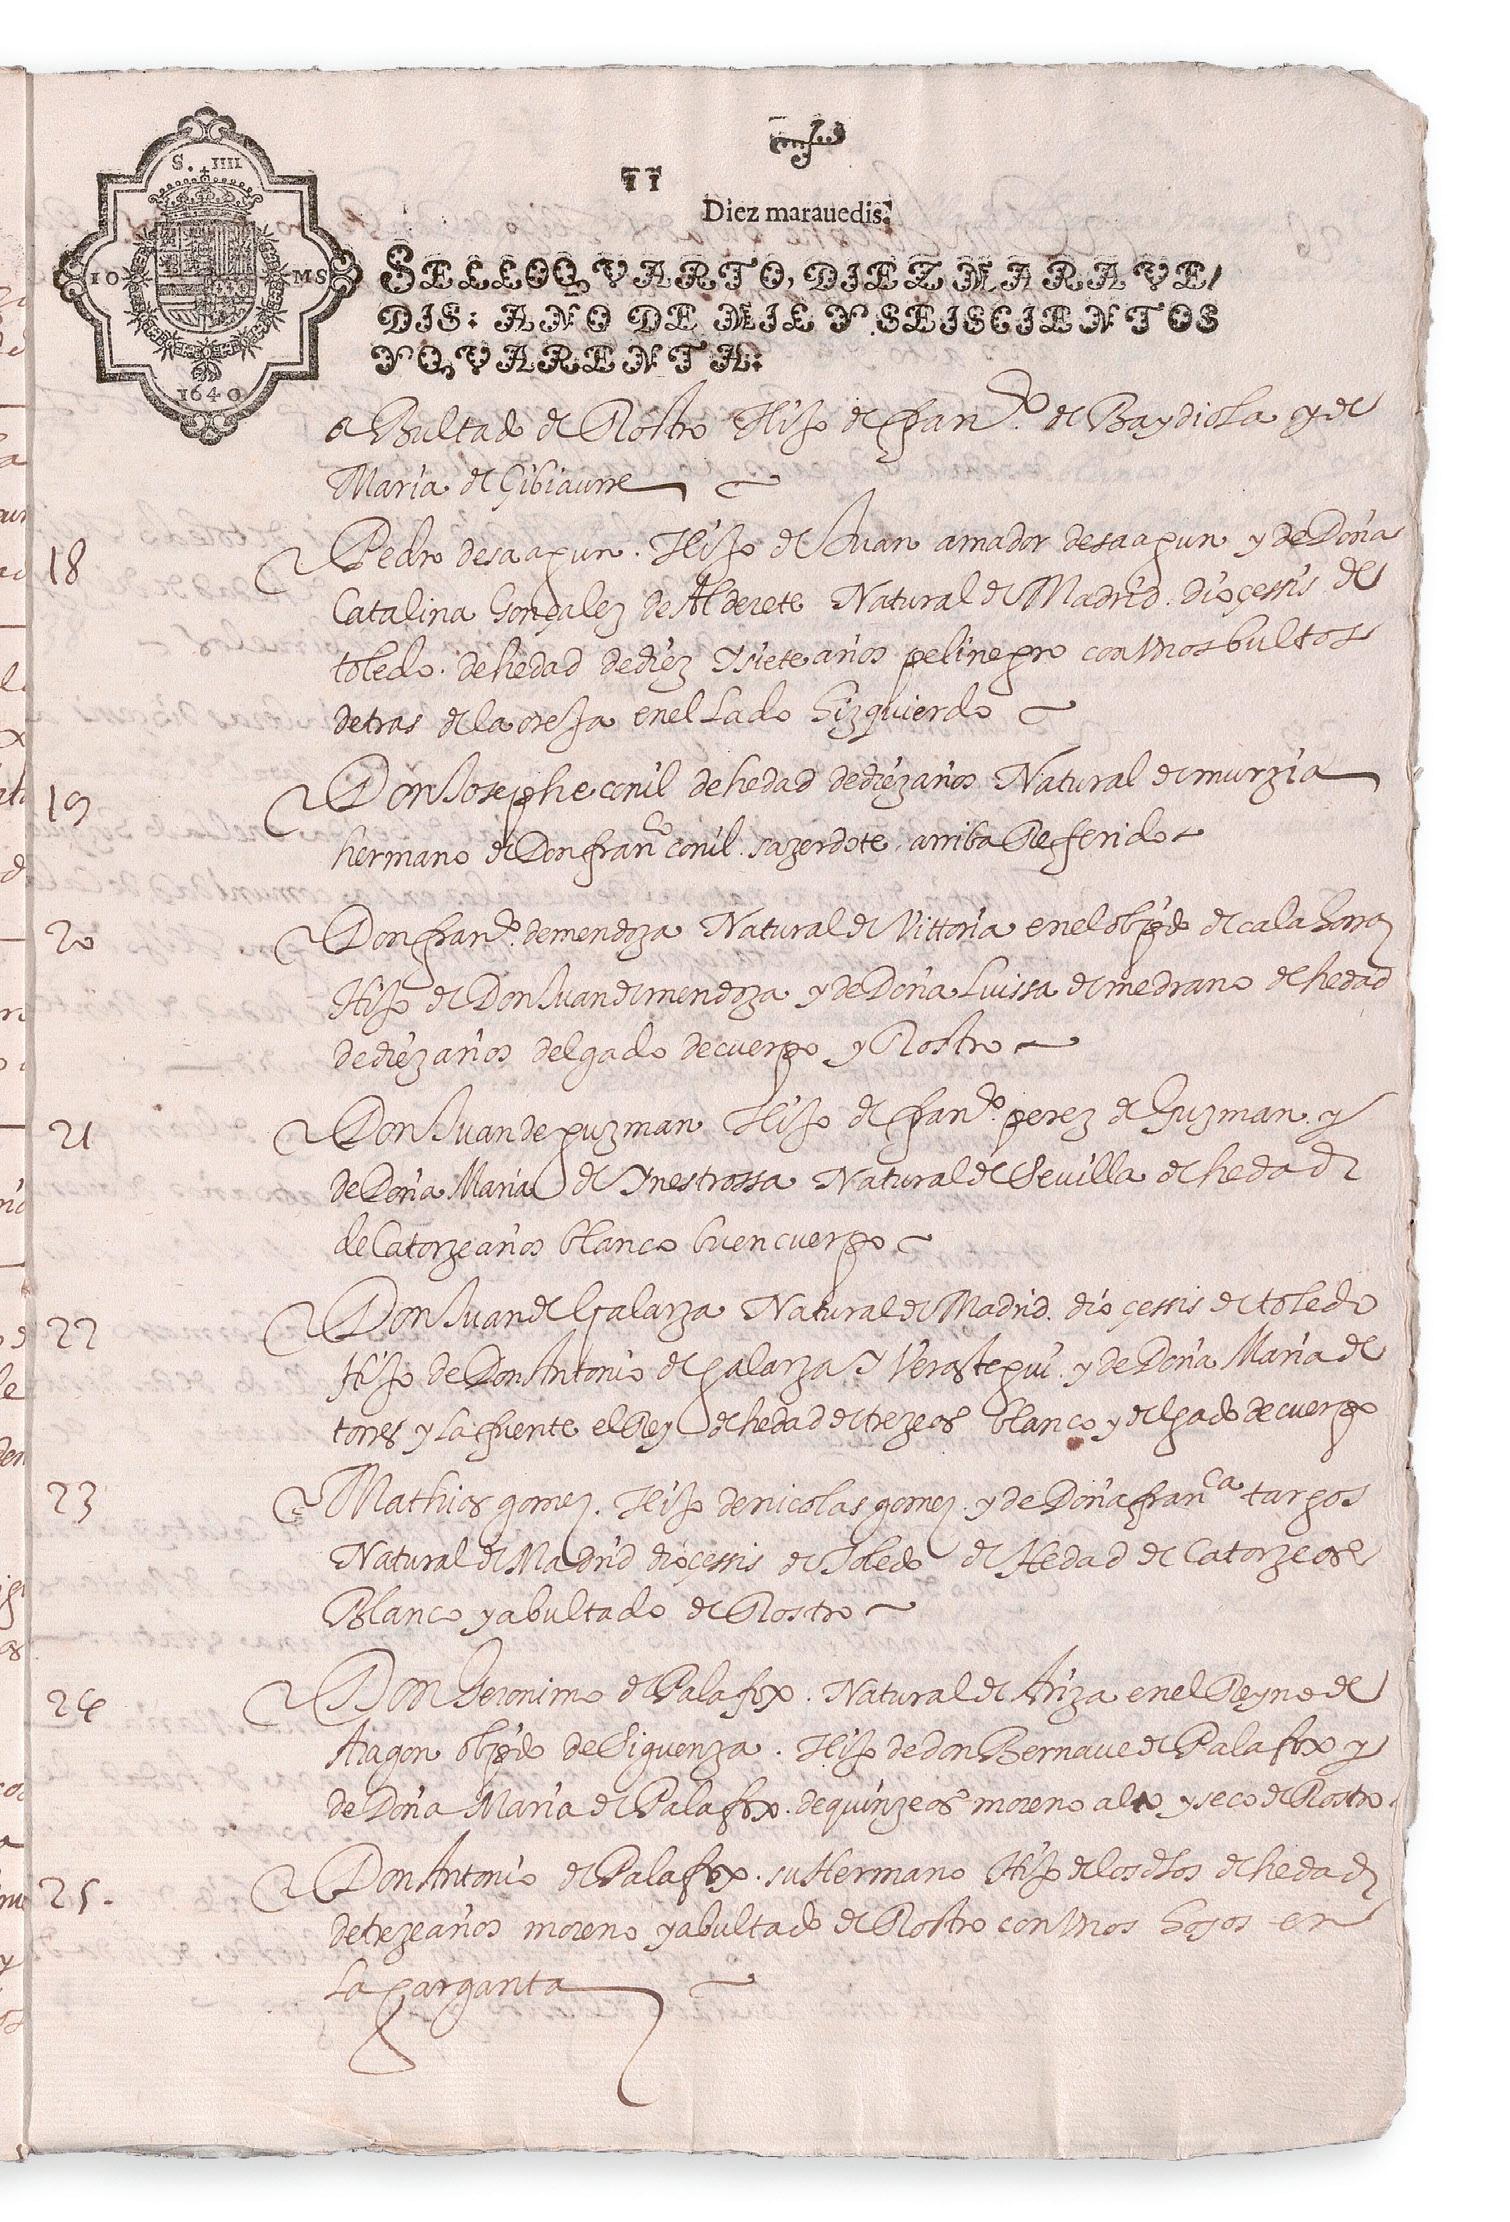 S. IIII
10 MS
1640
II
Diez marauedis.
SELLO QVARTO, DIEZ MARAVE/
DIS: AÑO DE MIL Y SEISCIENTOS
Y QVARENTA:
aBultado de Rostro Hijo de fran.do de Baydiola y de
Maria de Gibiaurre
18 Pedro desaagun. Hijo de Juan amador desaagun y de Doña
Catalina Gonçalez de Alderete Natural de Madrid. dioçessis de
toledo. de hedad de diez Ysiete años pelinegro con Unos bultos
detras de la oreja en el Lado hizquierdo
19 Don Josephe conil de hedad de diez años Natural de murzia
hermano de Don fran.co conil. sazerdote. arriba Refferido
20 Don fran.do de mendoza Natural de Vittoria en el obpdo de calahorra
Hijo de Don Juan de mendoza y de Doña Luissa de medrano de hedad
de diez años delgado de cuerpo y Rostro
21 Don Juan de guzman Hijo de fran.do perez de Guzman y
de Doña Maria de Ynestrossa Natural de Sevilla de hedad
de Catorze años blanco buen cuerpo
22 Don Juan de Galarza Natural de Madrid. dioçessis de toledo
Hijo de Don Antonio de galarza Y Verastegui y de Doña Maria de
torres y La fuente el Rey de hedad de treze os blanco y delgado de cuerpo
23 Mathias gomez. Hijo de nicolas gomez y de Doña fran.ca targos
Natural de Madrid dioçessis de Toledo de Hedad de Catorze os
Blanco y abultado de Rostro
24 Don Geronimo de Palafox. Natural de Ariza en el Reyno de
Aragon obpdo de Siguenza. Hijo de don Bernave de Palafox y
de Doña Maria de Palafox. de quinze os moreno alto y seco de Rostro.
25. Don Antonio de Palafox. su Hermano Hijo de los dhos de hedad
de treze años moreno y abultado de Rostro con Unos hoyos en
La garganta